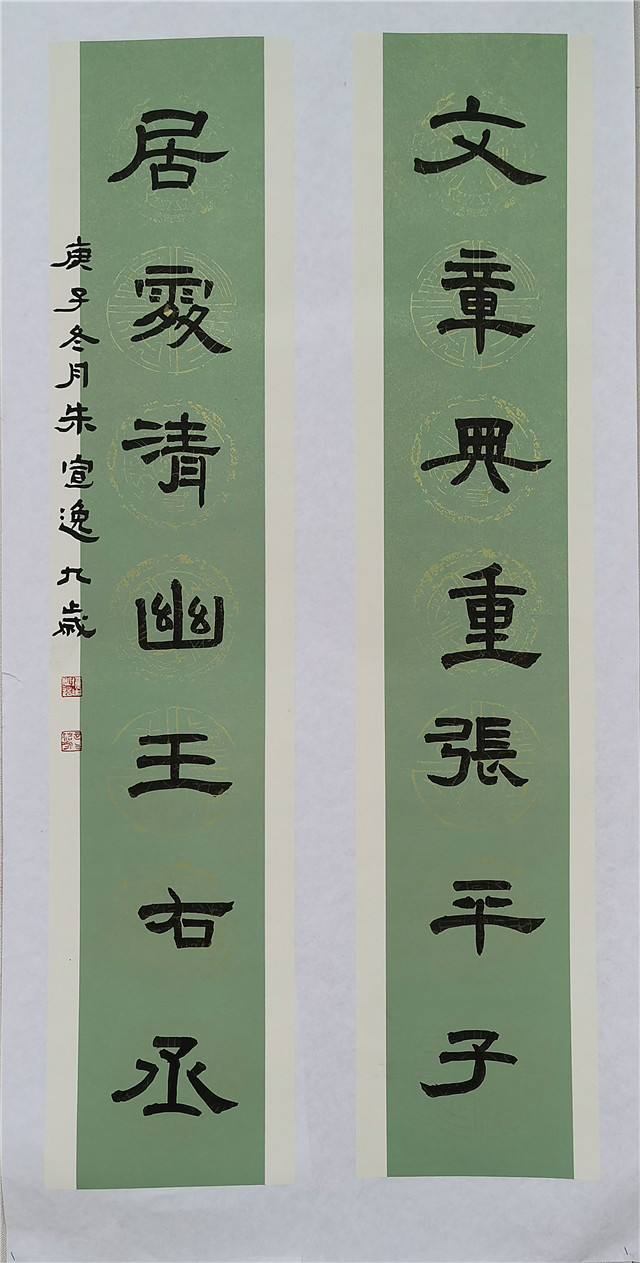 文章典重張平子
居處清幽王右丞
庚子冬月朱宣逸九歲